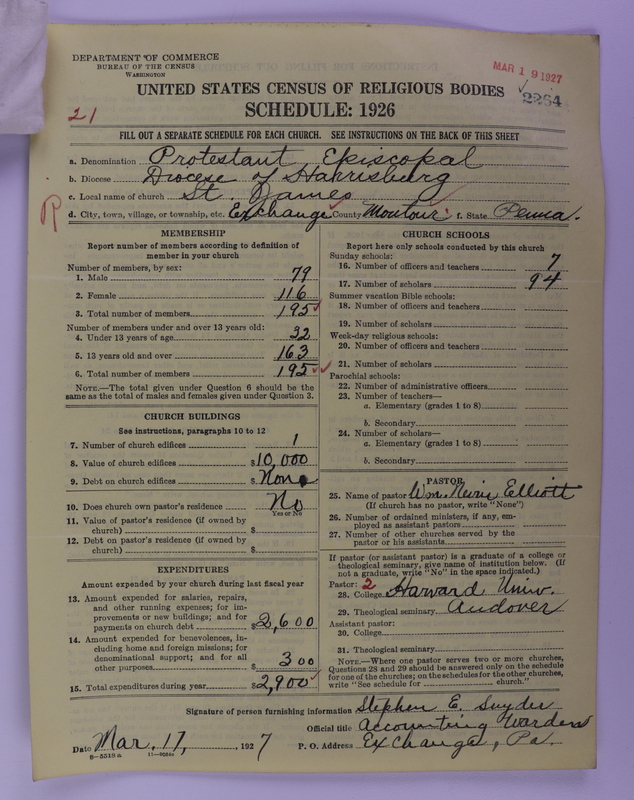 DEPARTMENT OF COMMERCE
BUREAU OF THE CENSUS
WASHINGTON
MAR 19 1927
2264
UNITED STATES CENSUS OF RELIGIOUS BODIES
SCHEDULE: 1926
21
FILL OUT A SEPARATE SCHEDULE FOR EACH CHURCH. SEE INSTRUCTIONS ON THE BACK OF THIS SHEET
a. Denomination Protestant Episcopal
b. Diocese Diocese of Harrisburg
c. Local name of church St. James
d. City, town, village, or township, etc. Exchange County Montour f. State Penna.
MEMBERSHIP
Report number of members according to definition of member in your church
Number of members, by sex:
1. Male 79
2. Female 116
3. Total number of members 195
Number of members under and over 13 years old:
4. Under 13 years of age 32
5. 13 years old and over 163
6. Total number of members 195
NOTE.—The total given under Question 6 should be the same as the total of males and females given under Question 3.
CHURCH BUILDINGS
See instructions, paragraphs 10 to 12
7. Number of church edifices 1
8. Value of church edifices $10,000
9. Debt on church edifices $None
10. Does church own pastor's residence No
Yes or No
11. Value of pastor's residence (if owned by church) $
12. Debt on pastor's residence (if owned by church) $
EXPENDITURES
Amount expended by your church during last fiscal year
13. Amount expended for salaries, repairs, and other running expenses; for improvements or new buildings; and for payments on church debt $2,600
14. Amount expended for benevolences, including home and foreign missions; for denominational support; and for all other purposes $300
15. Total expenditures during year $2,900
CHURCH SCHOOLS
Report here only schools conducted by this church
Sunday schools:
16. Number of officers and teachers 7
17. Number of scholars 94
Summer vacation Bible schools:
18. Number of officers and teachers
19. Number of scholars
Week-day religious schools:
20. Number of officers and teachers
21. Number of scholars
Parochial schools:
22. Number of administrative officers
23. Number of teachers—
a. Elementary (grades 1 to 8)
b. Secondary
24. Number of scholars—
a. Elementary (grades 1 to 8)
b. Secondary
PASTOR
25. Name of pastor Wm. Nevin Elliott
(If church has no pastor, write "None")
26. Number of ordained ministers, if any, employed as assistant pastors
27. Number of other churches served by the pastor or his assistants
If pastor (or assistant pastor) is a graduate of a college or theological seminary, give name of institution below. (If not a graduate, write "No" in the space indicated.)
Pastor: 2
28. College Harvard Univ.
29. Theological seminary Andover
Assistant pastor:
30. College
31. Theological seminary
NOTE.—Where one pastor serves two or more churches, Questions 28 and 29 should be answered only on the schedule for one of the churches; on the schedules for the other churches, write "See schedule for church."
Signature of person furnishing information Stephen E. Snyder
Official title Accounting Warden
Date Mar. 17, 1927 P. O. Address Exchange, Pa.
8-5518a